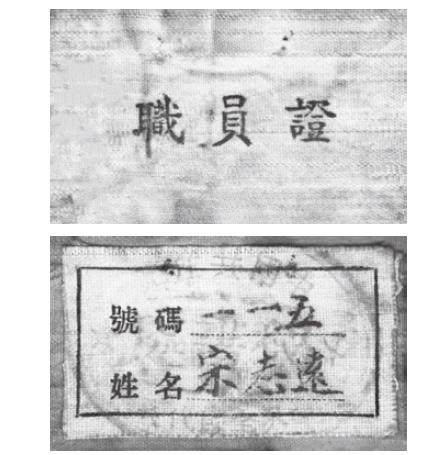 職員證
號碼 一一五
姓名 宋志遠